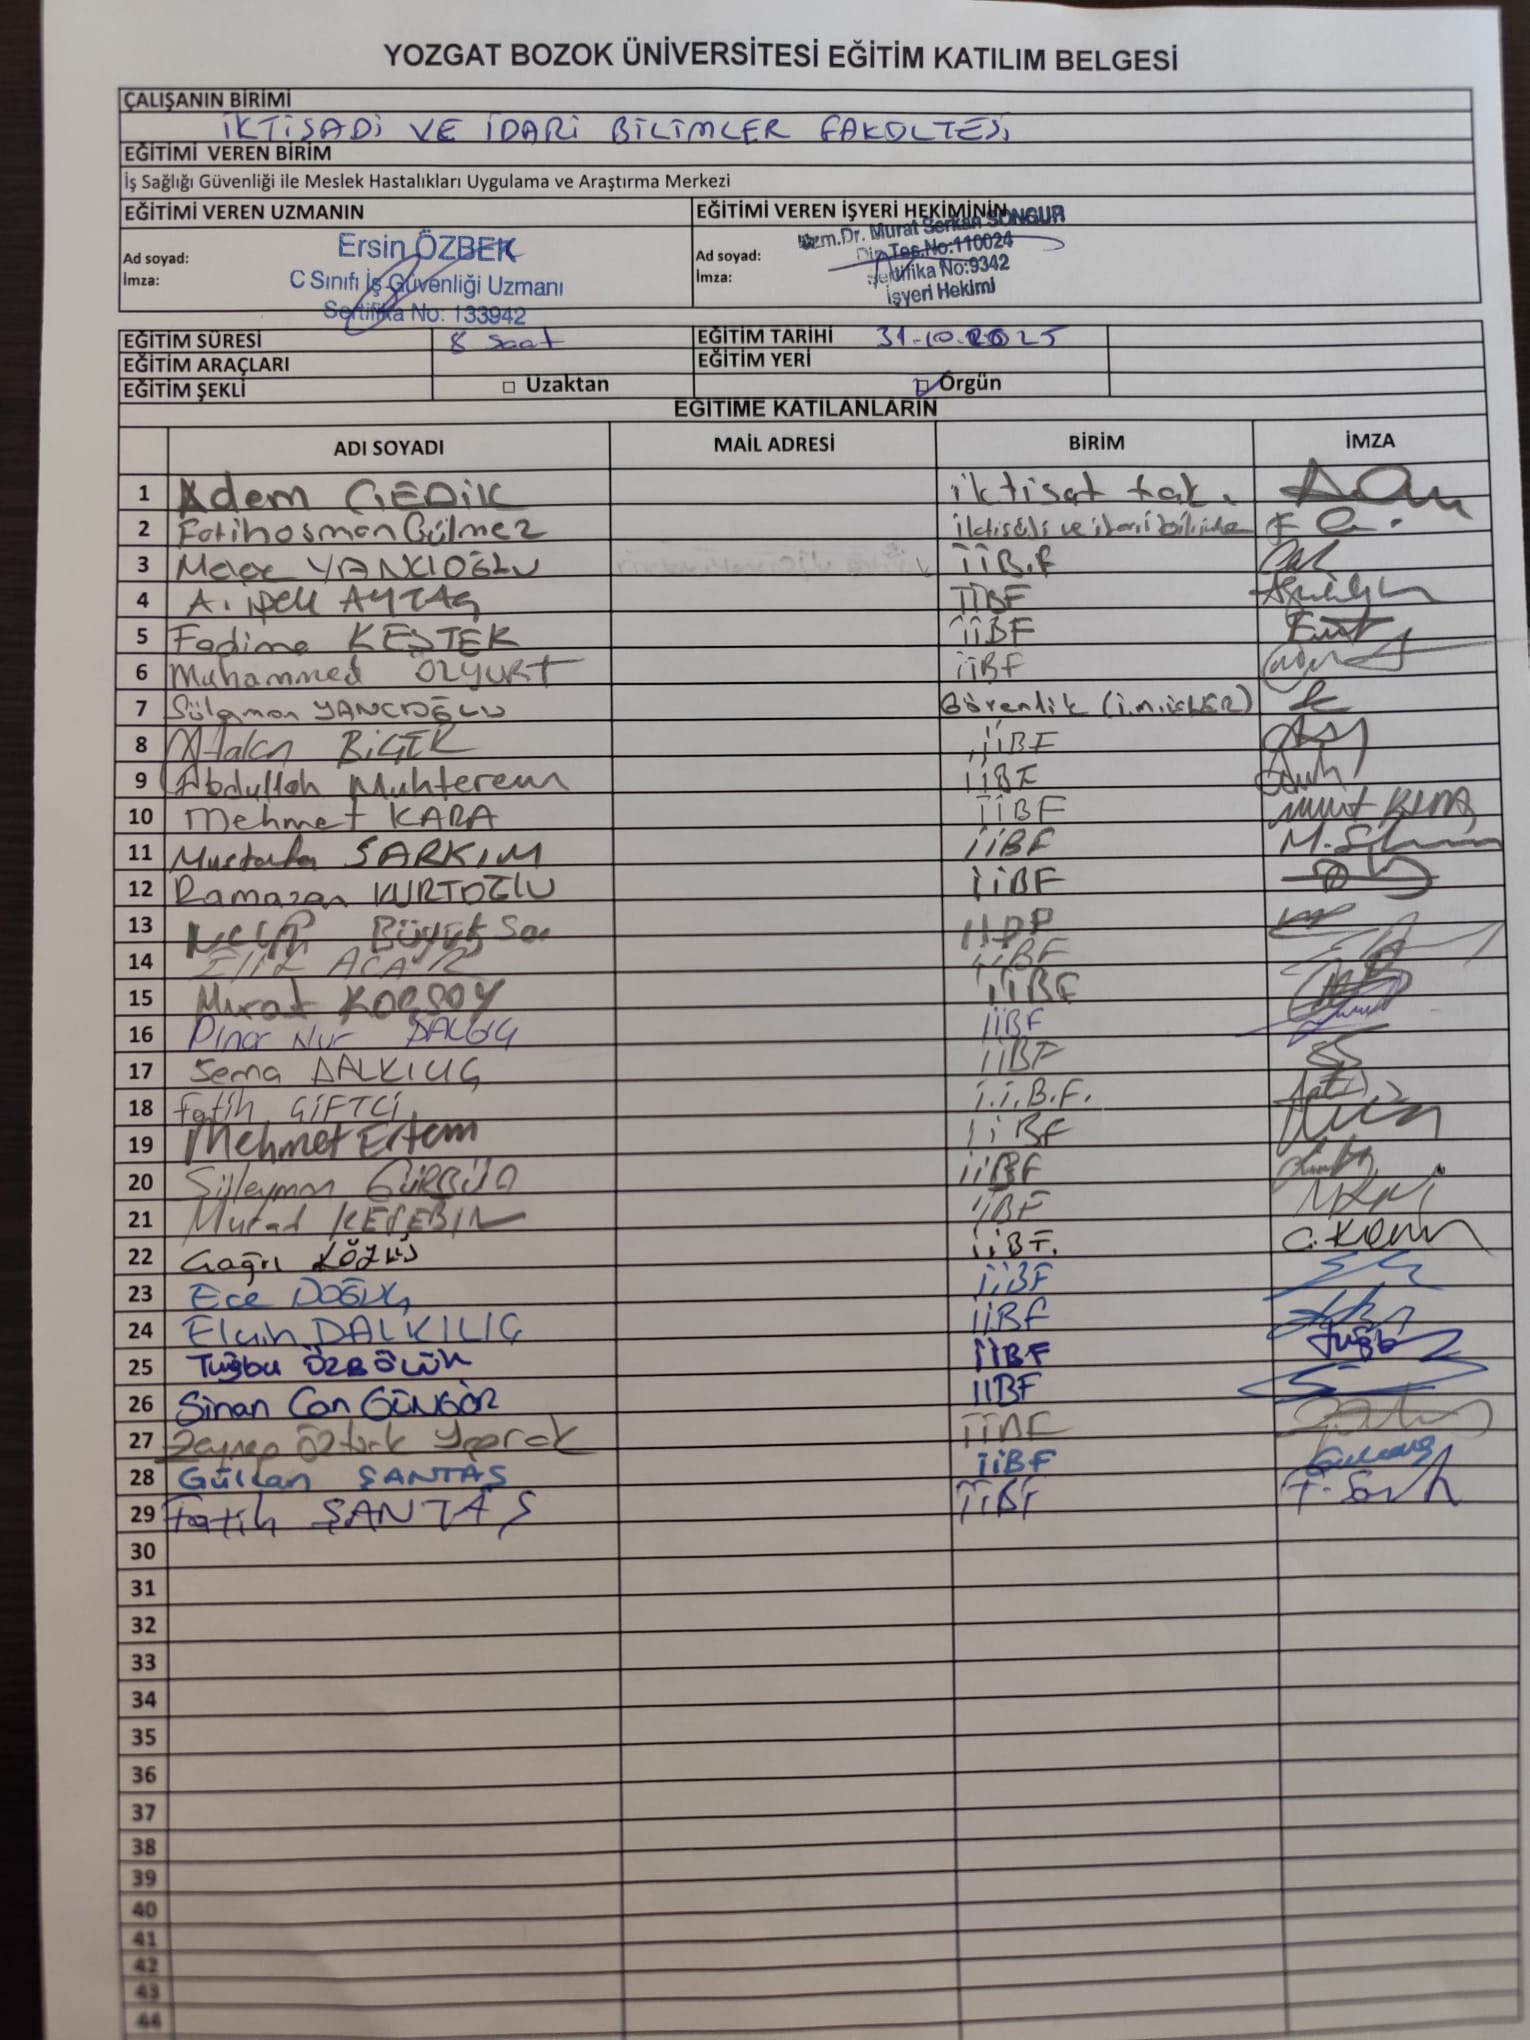 YOZGAT BOZOK ÜNİVERSİTESİ EĞİTİM KATILIM BELGESİ
ÇALIŞANIN BİRİMİ
İKTİSADİ VE İDARİ BİLİMLER FAKÜLTESİ
EĞİTİMİ VEREN BİRİM
İş Sağlığı Güvenliği ile Meslek Hastalıkları Uygulama ve Araştırma Merkezi
EĞİTİMİ VEREN UZMANIN EĞİTİMİ VEREN İŞYERİ HEKİMİNİN
Ad soyad: Ersin ÖZBEK Ad soyad: Uzm.Dr. Murat Serkan SONGUR
İmza: C Sınıfı İş Güvenliği Uzmanı İmza: Dip.Tes.No:110024
Sertifika No: 133942 Sertifika No:9342
İşyeri Hekimi
EĞİTİM SÜRESİ 8 saat EĞİTİM TARİHİ 31.10.2025
EĞİTİM ARAÇLARI EĞİTİM YERİ
EĞİTİM ŞEKLİ □ Uzaktan □ Örgün
EĞİTİME KATILANLARIN
ADI SOYADI MAİL ADRESİ BİRİM İMZA
1 Adem GEDİK iktisat fak.
2 Fatih osman Gülmez iktisadi ve idari F G.
3 YANCIOĞLU İİB.F
4 A. İpek AYTAÇ İİBF
5 Fadime KEŞTEK İİBF
6 Muhammed ÖZYURT İİBF
7 Süleyman YANCIOĞLU Güvenlik
8 BİÇER İİBF
9 Abdullah Muhterem İİBF
10 Mehmet KARA İİBF
11 Mustafa SARKIM İİBF
12 Ramazan KURTOĞLU İİBF
13 Büyük
14 Elif ACAR İİBF
15 Murat KOÇSOY İİBF
16 Pınar Nur DALGIÇ İİBF
17 Sema DALKILIÇ İİBF
18 Fatih ÇİFTCİ İ.İ.B.F.
19 Mehmet Ertem İİBF
20 Süleyman İİBF
21 Murad İİBF
22 Çağrı İİBF.
23 Ece İİBF
24 Elçin DALKILIÇ İİBF
25 Tuğba ÖZBÖLÜK İİBF tuğb
26 Sinan Can GÜNGÖR İİBF
27 Zeynep Öztürk Yaprak İİBF
28 Gülcan ŞANTAŞ İİBF
29 Fatih ŞANTAŞ İİBF
30
31
32
33
34
35
36
37
38
39
40
41
42
43
44